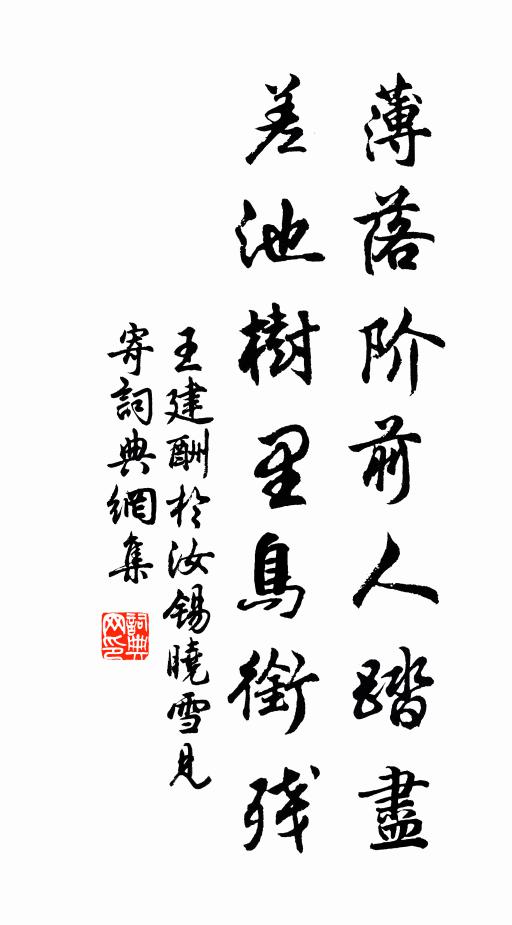 薄落阶前人踏盡
差池樹里鳥銜残
王建酬於汝锡曉雪見
寄詞典網集
詞典网印